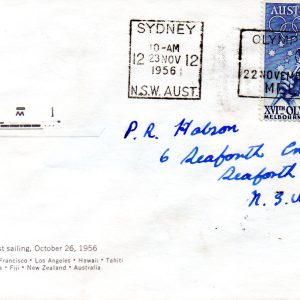 SYDNEY
10-AM
12 23 NOV 12
1956
N.S.W. AUST.
OLYMP
22 NOVEM
M
AUST
XVITH OLY
MELBOURN
P. R. Hobson
6 Seaforth
Seaforth
N.S.W
st sailing, October 26, 1956
Francisco • Los Angeles • Hawaii • Tahiti
a • Fiji • New Zealand • Australia